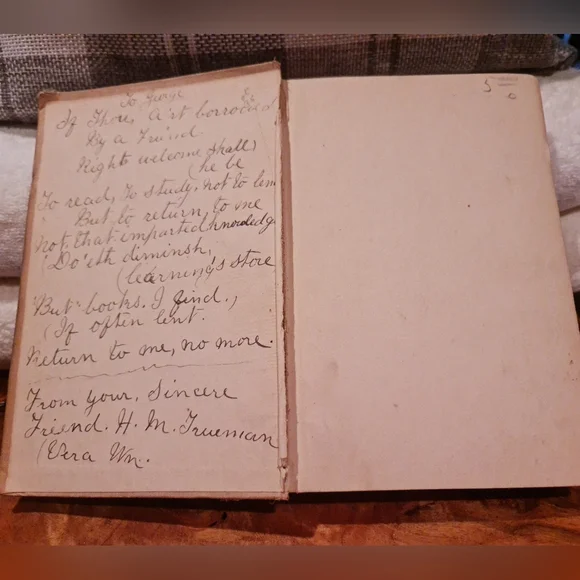 To George
If Thou, A'rt borrowed
By a Freind
Right welcome shall
(he be
To read, To study, not to len
But to return to me
Not, that imparted knowledg
(Do'eth diminsh,
(learning's store
"But" books. I find.,
(If often lent.
Return to me, no more.
From your, Sincere
Friend. H. M. Trueman
(Vera Wn.
5